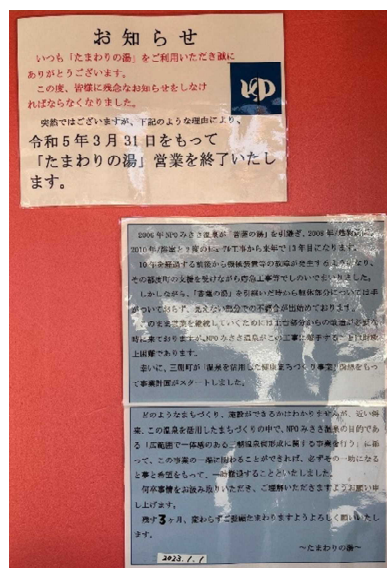 お知らせ
いつも「たまわりの湯」をご利用いただき誠に
ありがとうございます。
この度、皆様に残念なお知らせをしなけ
ればならなくなりました。
突然ではございますが、下記のような理由により、
令和5年3月31日をもって
「たまわりの湯」営業を終了いたし
ます。
2006年NPOみささ温泉が「菩薩の湯」を引継ぎ、2008年
2010年 と2度の 工事から来年で13年目になります。
10年を経過する前後から機械装置等の故障が発生するようになり、
その都度町の支援を受けながら応急工事等でしのいでまいりました。
しかしながら、「 の湯」を引継いだ時から躯体部分については手
がついておらず、見えない部分での不具合が出始めております。
このまま営業を継続していくためには 部分からの改造が必要な
時に来ておりますがNPOみささ温泉がこの工事に着手する
上困難であります。
幸いに、三朝町が「温泉を活用した健康まちづくり事業」 をもっ
て事業計画がスタートしました。
どのようなまちづくり、施設ができるかはわかりませんが、近い将
来、この温泉を活用したまちづくりの中で、NPOみささ温泉の目的であ
る「広範囲で一体感のある三朝温泉街形成に関する事業を行う」に則
って、この事業の一部に関わることができれば、必ずその一助になる
と夢と希望をもって、一時撤退することといたしました。
何卒事情をお汲み取りいただき、ご理解いただきますようお願い申
し上げます。
残す3ヶ月、変わらずご愛顧たまわりますようよろしく願いいたし
ます。
2023.1.1
～たまわりの湯～